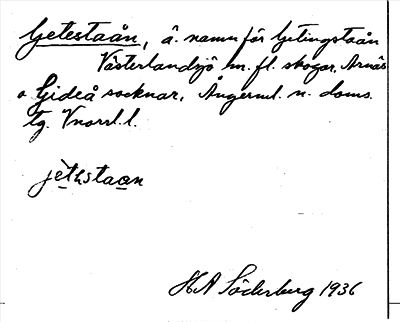 Getestaån, å. namn för Getingstaån
Västerlandsjö m. fl. skogar, Arnäs
o. Gideå socknar, Ångerml. n. doms.
tg. Vnorrl. l.
jèthstaan
H A Söderberg 1936